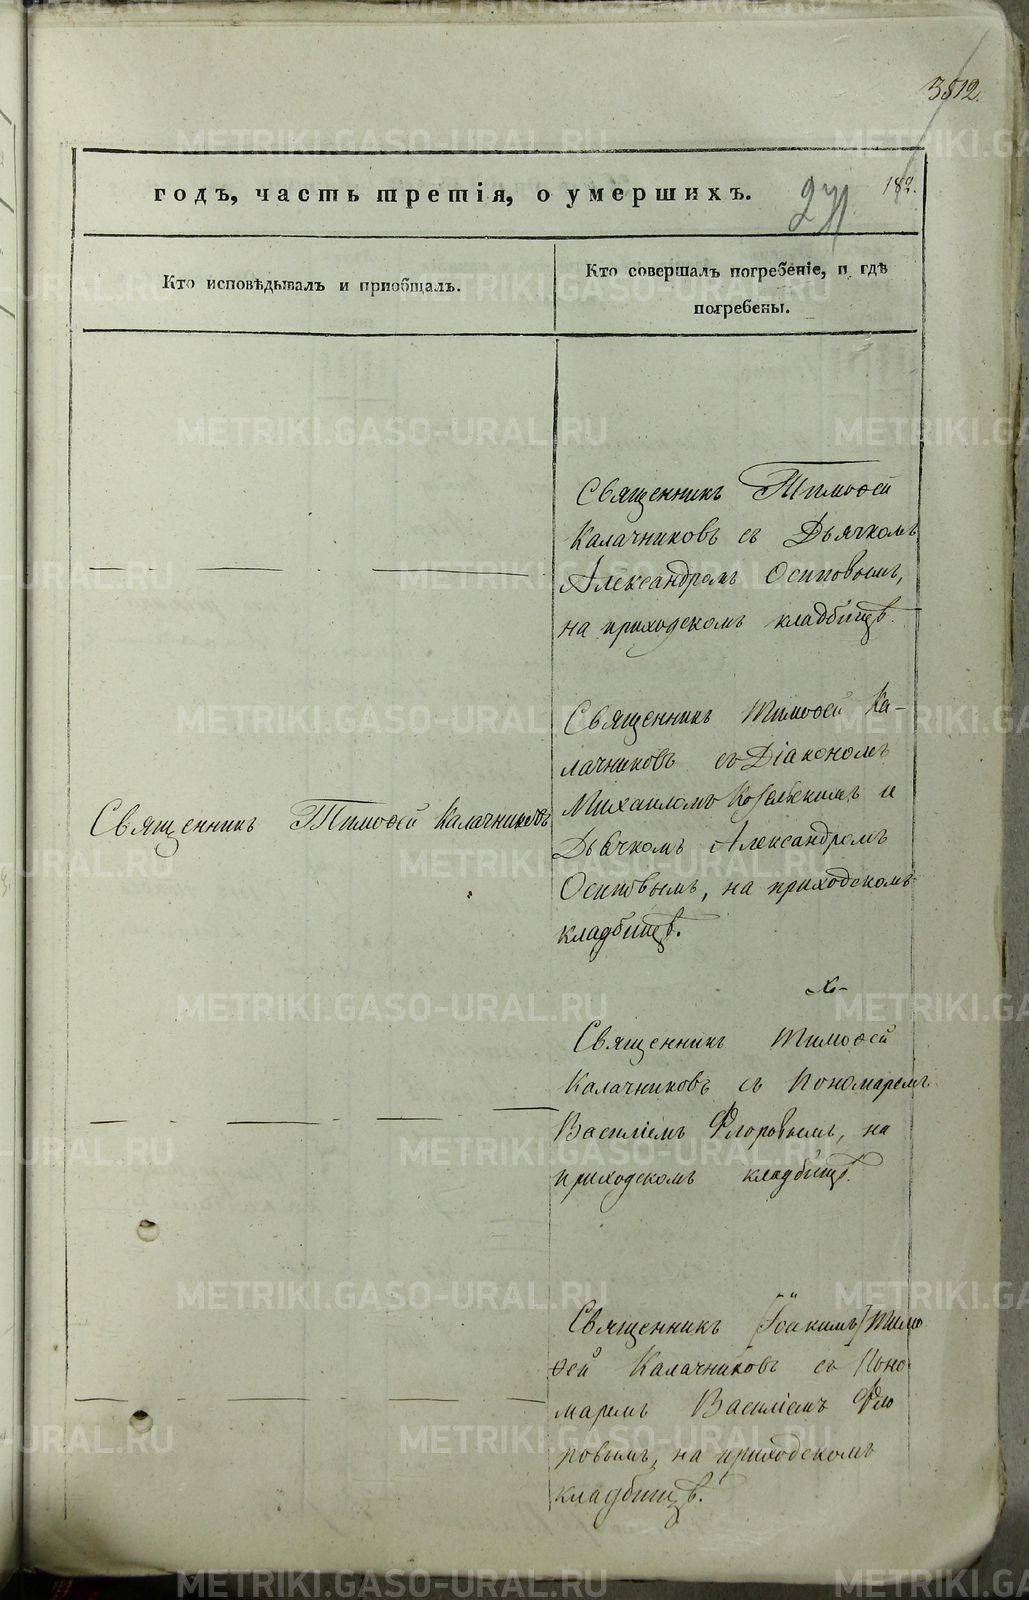 3812.
годъ, часть третія, о умершихъ.
Кто исповѣдывалъ и пріобщалъ.
Кто совершалъ погребеніе, и гдѣ
погребены.
Священникъ Тимоѳей
Калачниковъ съ Дьячкомъ
Александромъ Осиповымъ,
на приходскомъ кладбищѣ.
Священникъ Тимоѳей Калачниковъ
Священникъ Тимоѳей Ка-
лачниковъ съ Діакономъ
Михаиломъ и
Дьячкомъ Александромъ
Осиповымъ, на приходскомъ
кладбищѣ.
Священникъ Тимоѳей
Калачниковъ съ Пономаремъ
Василіемъ Флоровымъ, на
приходскомъ кладбищѣ.
Священникъ [Іоакимъ] Тимо
ѳей Калачниковъ съ Поно
маремъ Василіемъ Фло
ровымъ, на приходскомъ
кладбищѣ.
METRIKI.GASO-URAL.RU